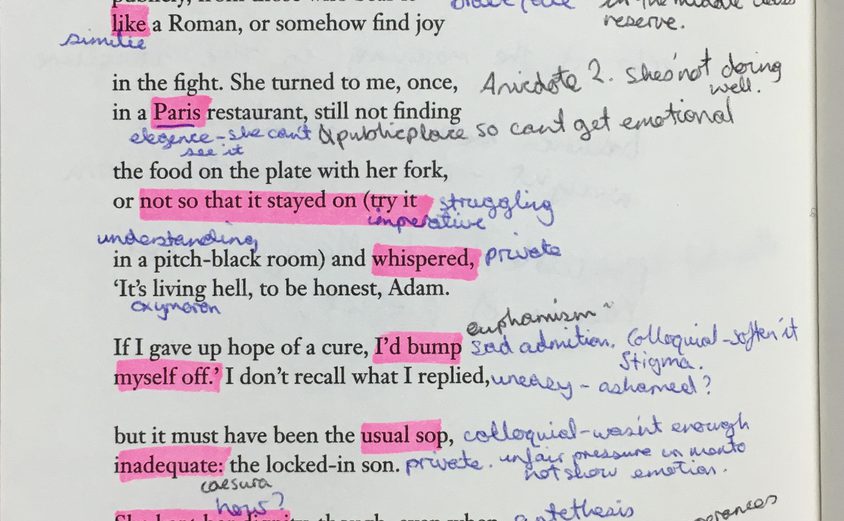 in the middle class
like a Roman, or somehow find joy
reserve.
similie
in the fight. She turned to me, once,
Anicdote 2. She's not doing
well.
in a Paris restaurant, still not finding
elegence - she can't
see it
& public place so cant get emotional
the food on the plate with her fork,
or not so that it stayed on (try it
struggling
imperative
understanding
in a pitch-black room) and whispered,
private
'It's living hell, to be honest, Adam.
oxymoron
euphamism
If I gave up hope of a cure, I'd bump
sad admition. Colloquial - soften it
Stigma.
myself off.' I don't recall what I replied,
uneasy - ashamed?
but it must have been the usual sop,
colloquial - wasn't enough
inadequate: the locked-in son.
private. unfair pressure on men to
not show emotion.
caesura
how?
antethesis